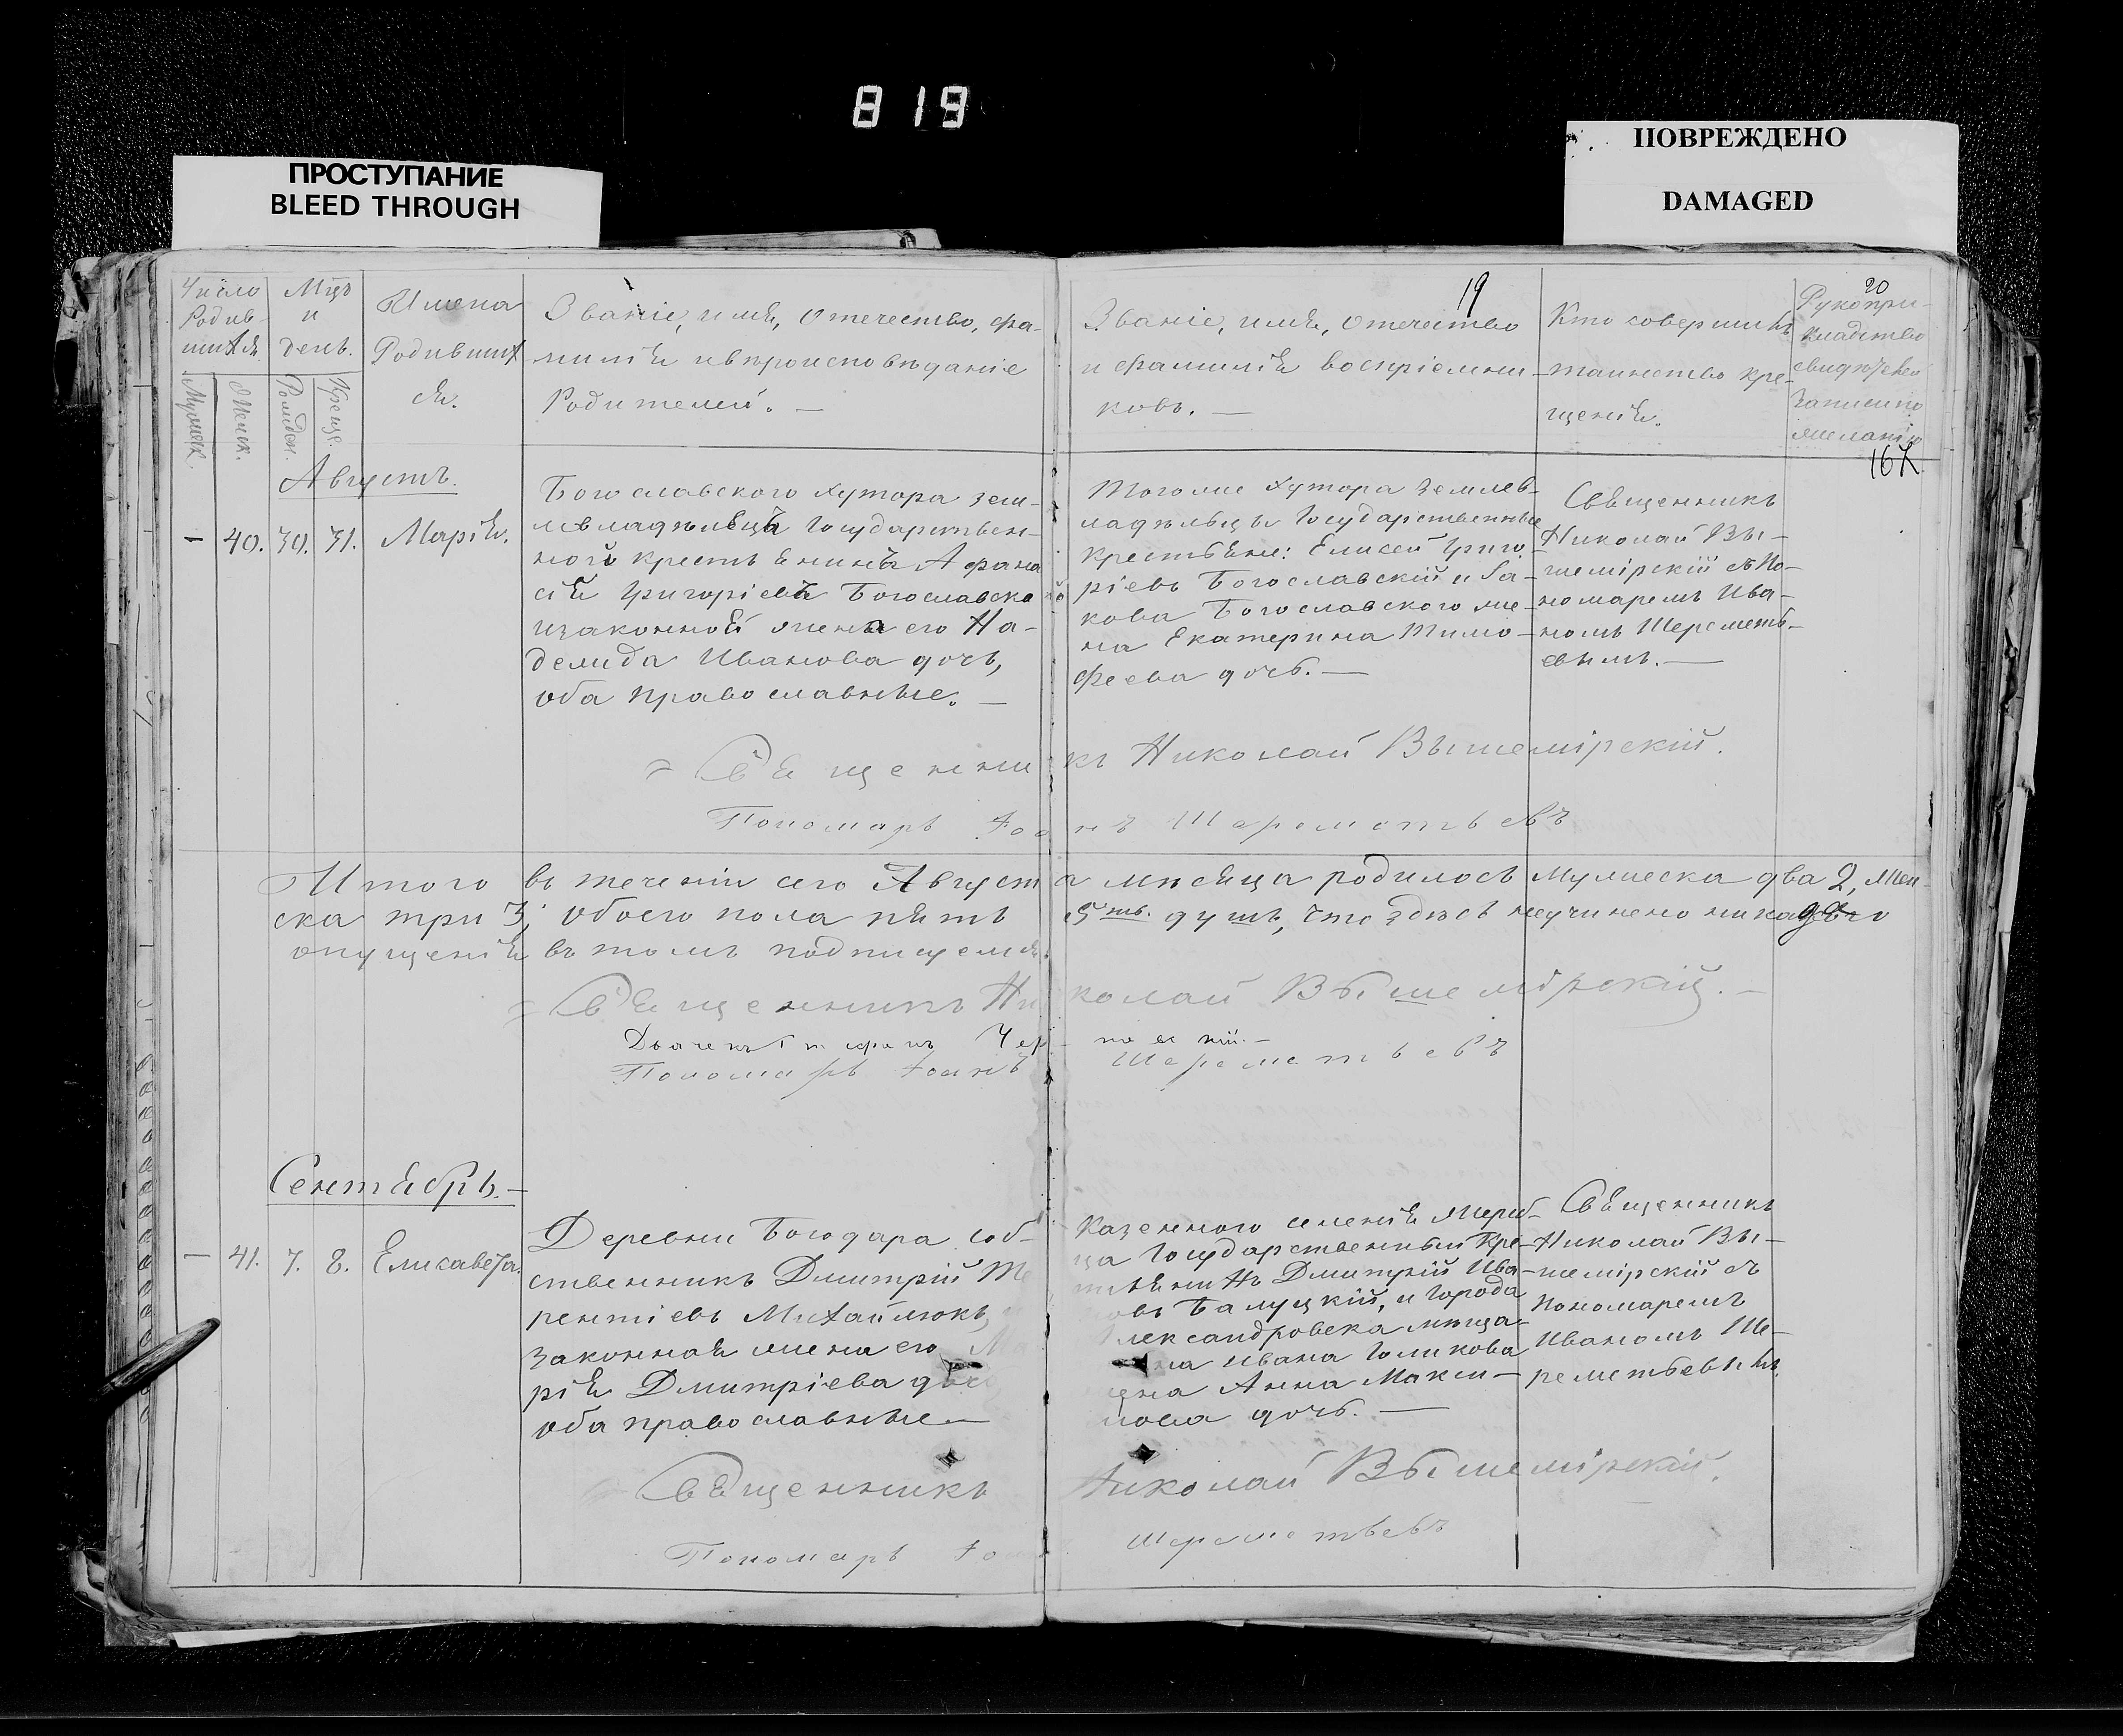 819
ПРОСТУПАНИЕ
BLEED THROUGH
ПОВРЕЖДЕНО
DAMAGED
19
20
167
Число
Родив-
шихся.
Мужеск.
Женск.
Мцъ
и
день.
Рожден.
Креще.
Имена
Родивших
ся.
Званіе, имя, отечество, фа-
милія и вѣроисповѣданіе
Родителей. —
Званіе, имя, отечество
и фамилія воспріемни-
ковъ. —
Кто совершилъ
таинство кре-
щенія.
Рукопри-
кладство
свидѣтелей
записи по
желанію
Августъ.
— 40. 30. 31. Марія.
Богославского хутора зем-
левладѣльца Государствен-
ной крестьянинъ Афана
сій Григорієвъ Богославско
и законной жена его На-
дежда Иванова дочь,
оба православные. —
Того же хутора землев-
ладѣльцы Государственные
крестьяне: Елисей Григо-
ріевъ Богославскій и Іа-
кова Богославского же-
на Екатерина Тимо-
феева дочь. —
Священникъ
Николай Вы-
шемірскій съ По-
номаремъ Ива-
номъ Шереметь-
евымъ. —
Священникъ Николай Вышемірскій.
Пономарь Іоаннъ Шереметьевъ
Итого въ теченіи сего Августа мѣсяца родилось мужеска два 2, жен-
ска три 3; обоего пола пять 5ть. душъ, что здѣсь неучинено никакого
опущенія въ томъ подписуемся
Священникъ Николай Вышемірскій. —
Пономарь Іоаннъ Шереметьевъ
Сентябрь. —
— 41. 7. 8. Елисавета.
Деревни Богодара соб-
ственникъ Дмитрій Те
рентіевъ Михайлюкъ,
законная жена его Ма
рія Дмитріева дочь
оба православные —
Казенного имѣнія
Государственный кре-
стьянинъ Дмитрій Ива-
новъ Балуцкій, и города
Александровска мѣща-
нина Ивана Голикова
жена Анна Макси-
мова дочь. —
Священникъ
Николай Вы-
шемірскій съ
Пономаремъ
Иваномъ Ше-
реметьевымъ.
Священникъ Николай Вышемірскій.
Пономарь Шереметьевъ